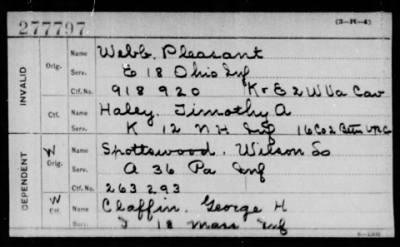 277797 (3-M-4)
INVALID
Orig.
Name Webb, Pleasant
Serv. E 18 Ohio Inf
Ctf. No. 918 920 K & E 2 W Va Cav
Ctf.
Name Haley, Timothy A
Serv. K 12 N H Inf 16 Co 2 Battn V.R.C
DEPENDENT
W
Orig.
Name Spottswood, Wilson Lo
Serv. A 36 Pa Inf
Ctf. No. 263 293
W
Ctf.
Name Claffin, George H
Serv. I 18 Mass Inf